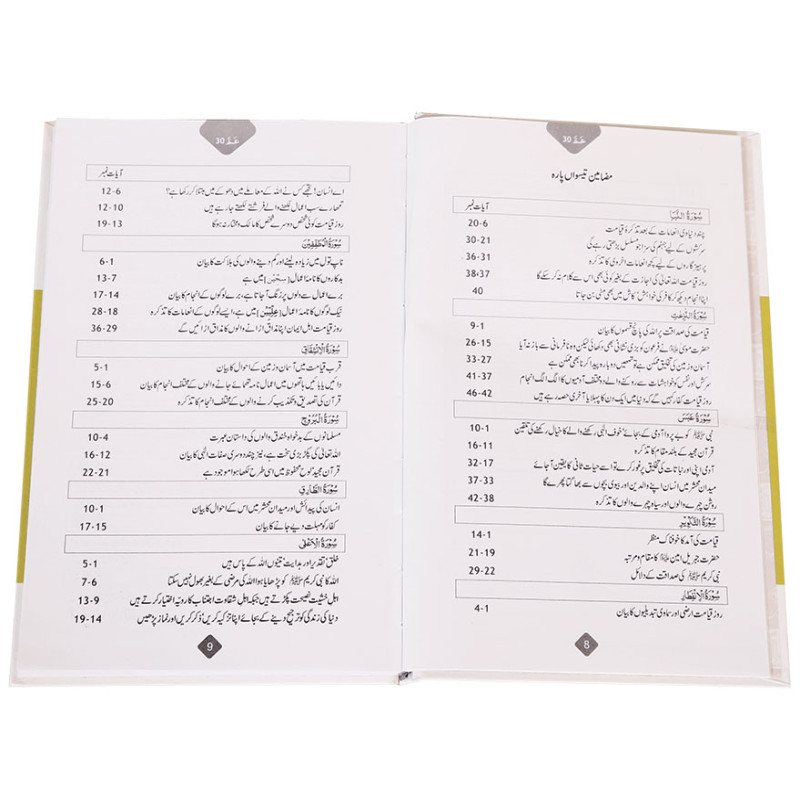 عَمَّ 30
مضامین تیسواں پارہ
آیات نمبر
سُوْرَةُ النَّبَا
چند دنیاوی انعامات کے بعد تذکرۂ قیامت 20-6
سرکشوں کے لیے جہنم کی سزا جو مسلسل بڑھتی رہے گی 30-21
پرہیزگاروں کے لیے کچھ انعاماتِ اخروی کا تذکرہ 36-31
روز قیامت اللہ تعالیٰ کی اجازت کے بغیر کوئی بھی اس سے کلام نہ کر سکے گا 38،37
اپنا انجام دیکھ کر کافر کی خواہش ’کاش میں بھی مٹی بن جاتا 40
سُوْرَةُ النّٰزِعٰتِ
قیامت کی صداقت پر اللہ کی پانچ قسموں کا بیان 9-1
حضرت موسیٰ علیہ السلام نے فرعون کو بڑی نشانی بھی دکھائی لیکن وہ نافرمانی سے باز نہ آیا 26-15
آسمان و زمین کی تخلیق ممکن ہے تو تمھیں دوبارہ پیدا کرنا بھی ممکن ہے 33-27
سرکش اور نفس کو خواہشات سے روکنے والے دو مختلف آدمیوں کا الگ الگ انجام 41-37
روز قیامت کفار کہیں گے کہ دنیا میں ایک دن کا پہلا یا آخری حصہ رہے ہیں 46-42
سُوْرَةُ عَبَسَ
نبی ﷺ کو بے پروا آدمی کے بجائے ’خوف الٰہی رکھنے والے کا خیال رکھنے کی تلقین 10-1
قرآن مجید کے بلند مقام کا تذکرہ 16-11
آدمی اپنی اور نباتات کی تخلیق پر غور کرے تو اسے حیات ثانی کا یقین آ جائے 32-17
میدان محشر میں انسان اپنے والدین اور بیوی بچوں سے بھاگتا پھرے گا 37-33
روشن چہرے والوں اور سیاہ چہرے والوں کا تذکرہ 42-38
سُوْرَةُ التَّكْوِيْرِ
قیامت کی آمد کا خوفناک منظر 14-1
حضرت جبریل امین علیہ السلام کا مقام و مرتبہ 21-19
نبی کریم ﷺ کی صداقت کے دلائل 29-22
سُوْرَةُ الْاِنْفِطَارِ
روز قیامت ارضی اور سماوی تبدیلیوں کا بیان 4-1
8
عَمَّ 30
آیات نمبر
اے انسان! تجھے کس نے اللہ کے معاملے میں دھوکے میں مبتلا کر رکھا ہے؟ 12-6
تمھارے سب اعمال لکھنے والے فرشتے لکھتے جا رہے ہیں 12-10
روز قیامت کوئی شخص دوسرے شخص کا مالک و مختار نہ ہوگا 19-13
سُوْرَةُ الْمُطَفِّفِيْنَ
ناپ تول میں زیادہ لینے اور کم دینے والوں کی ہلاکت کا بیان 6-1
بدکاروں کا نامۂ اعمال [سِجِّیْن] میں ہے 13-7
برے اعمال سے دلوں پر زنگ آجاتا ہے، برے لوگوں کے انجام کا بیان 17-14
نیک لوگوں کا نامۂ اعمال [عِلِّیِّیْن] میں ہے، ایسے لوگوں کے انعامات کا تذکرہ 28-18
روز قیامت اہل ایمان اپنا مذاق اڑانے والوں کا مذاق اڑائیں گے 36-29
سُوْرَةُ الْاِنْشِقَاقِ
قرب قیامت میں آسمان و زمین کے احوال کا بیان 5-1
دائیں یا بائیں ہاتھوں میں اعمال نامہ تھمائے جانے والوں کے مختلف انجام کا بیان 15-6
قرآن کی تصدیق و تکذیب کرنے والوں کے مختلف انجام کا تذکرہ 25-20
سُوْرَةُ الْبُرُوْجِ
مسلمانوں کے بدخواہ خندق والوں کی داستان عبرت 10-4
اللہ تعالیٰ کی پکڑ بڑی سخت ہے، نیز چند دوسری صفات الٰہی کا بیان 16-12
قرآن مجید ’لوح محفوظ میں اسی طرح لکھا ہوا موجود ہے 22-21
سُوْرَةُ الطَّارِقِ
انسان کی پیدائش اور میدان محشر میں اس کے احوال کا بیان 10-1
کفار کو مہلت دیے جانے کا بیان 17-15
سُوْرَةُ الْاَعْلٰى
خلق’ تقدیر اور ہدایت’ تینوں اللہ کے پاس ہیں 5-1
اللہ کا نبی کریم ﷺ کو پڑھایا ہوا اللہ کی مرضی کے بغیر بھول نہیں سکتا 7-6
اہل خشیت نصیحت پکڑتے ہیں جبکہ اہل شقاوت اجتناب کا رویہ اختیار کرتے ہیں 13-9
دنیا کی زندگی کو ترجیح دینے کے بجائے اپنا تزکیہ کریں’ ذکر کریں اور نماز پڑھیں 19-14
9